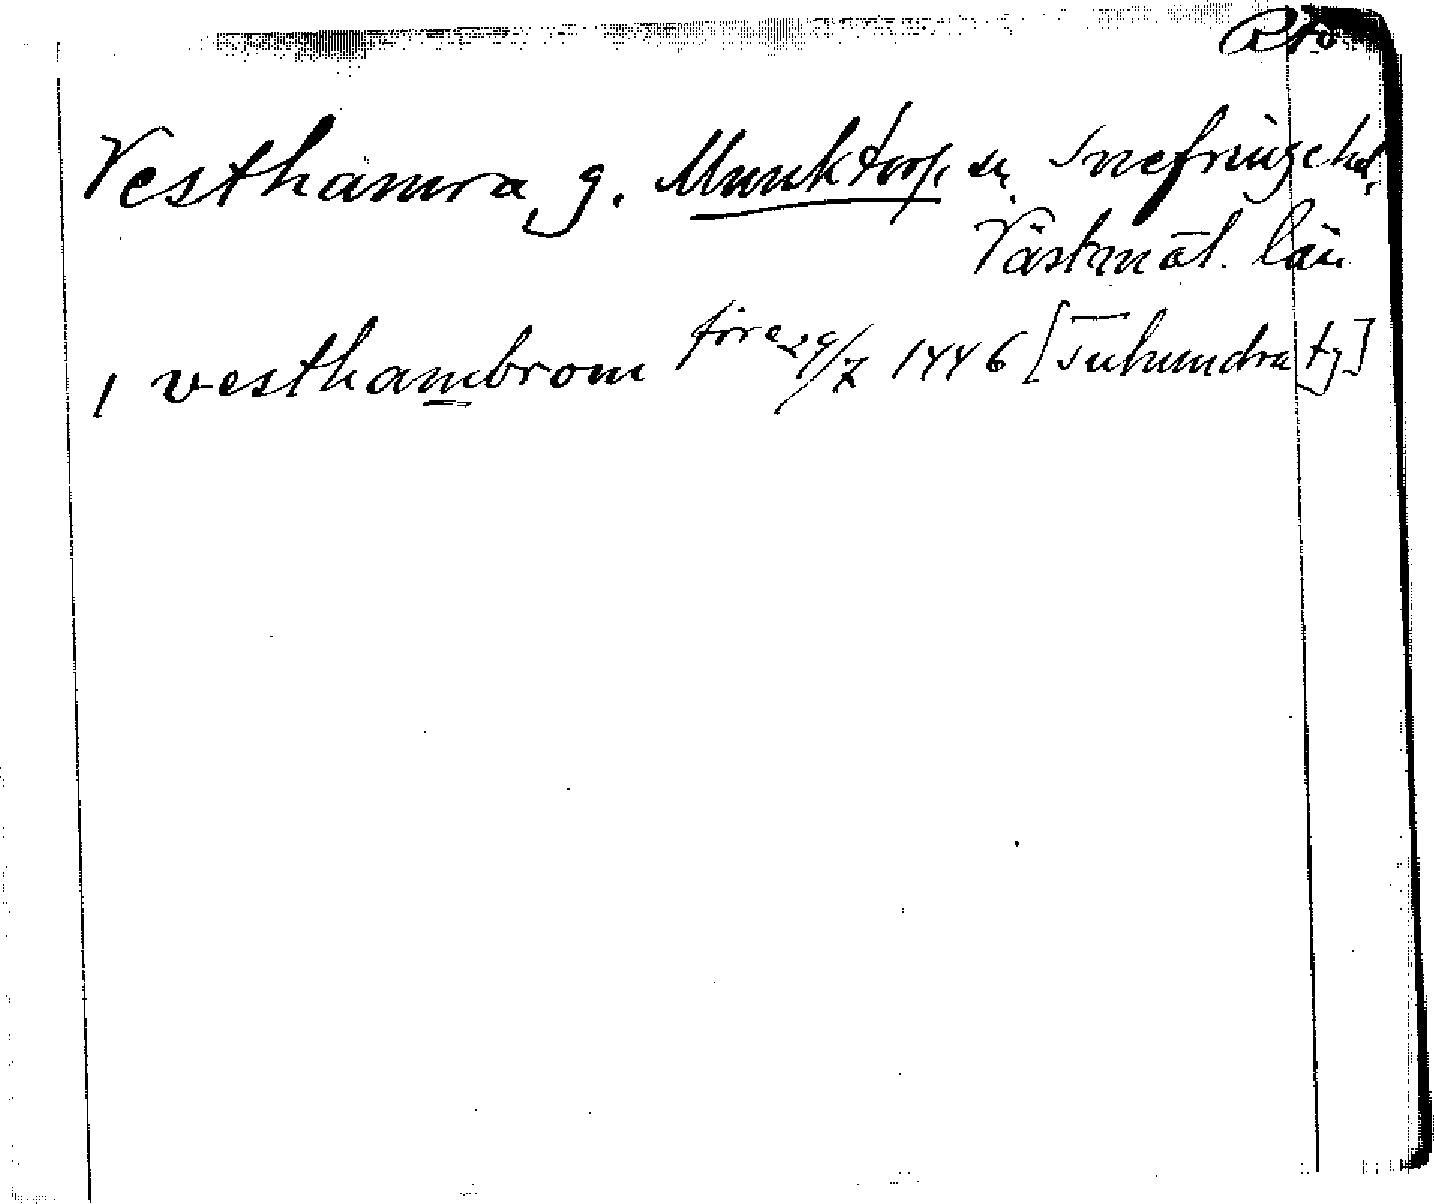 Rtö
Vesthamra, g. Munktorp sn Snefringe hd,
Västmal. län
, vesthambrom före 29/7 1446 [Tuhundra tg]